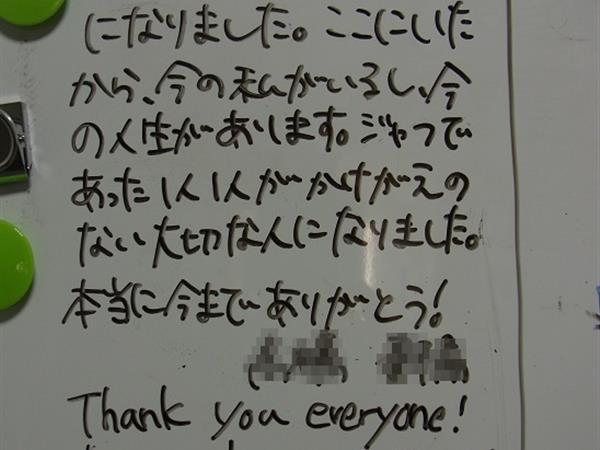 になりました。ここにいた
から、今の私がいるし、今
の人生があります。ジャフで
あった1人1人がかけがえの
ない大切な人になりました。
本当に今までありがとう!
Thank you everyone!